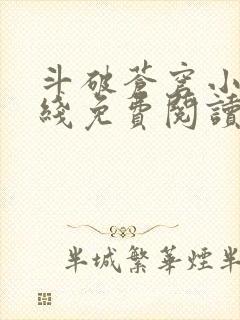 斗破蒼穹小
綫免費閱讀
半城繁華煙半